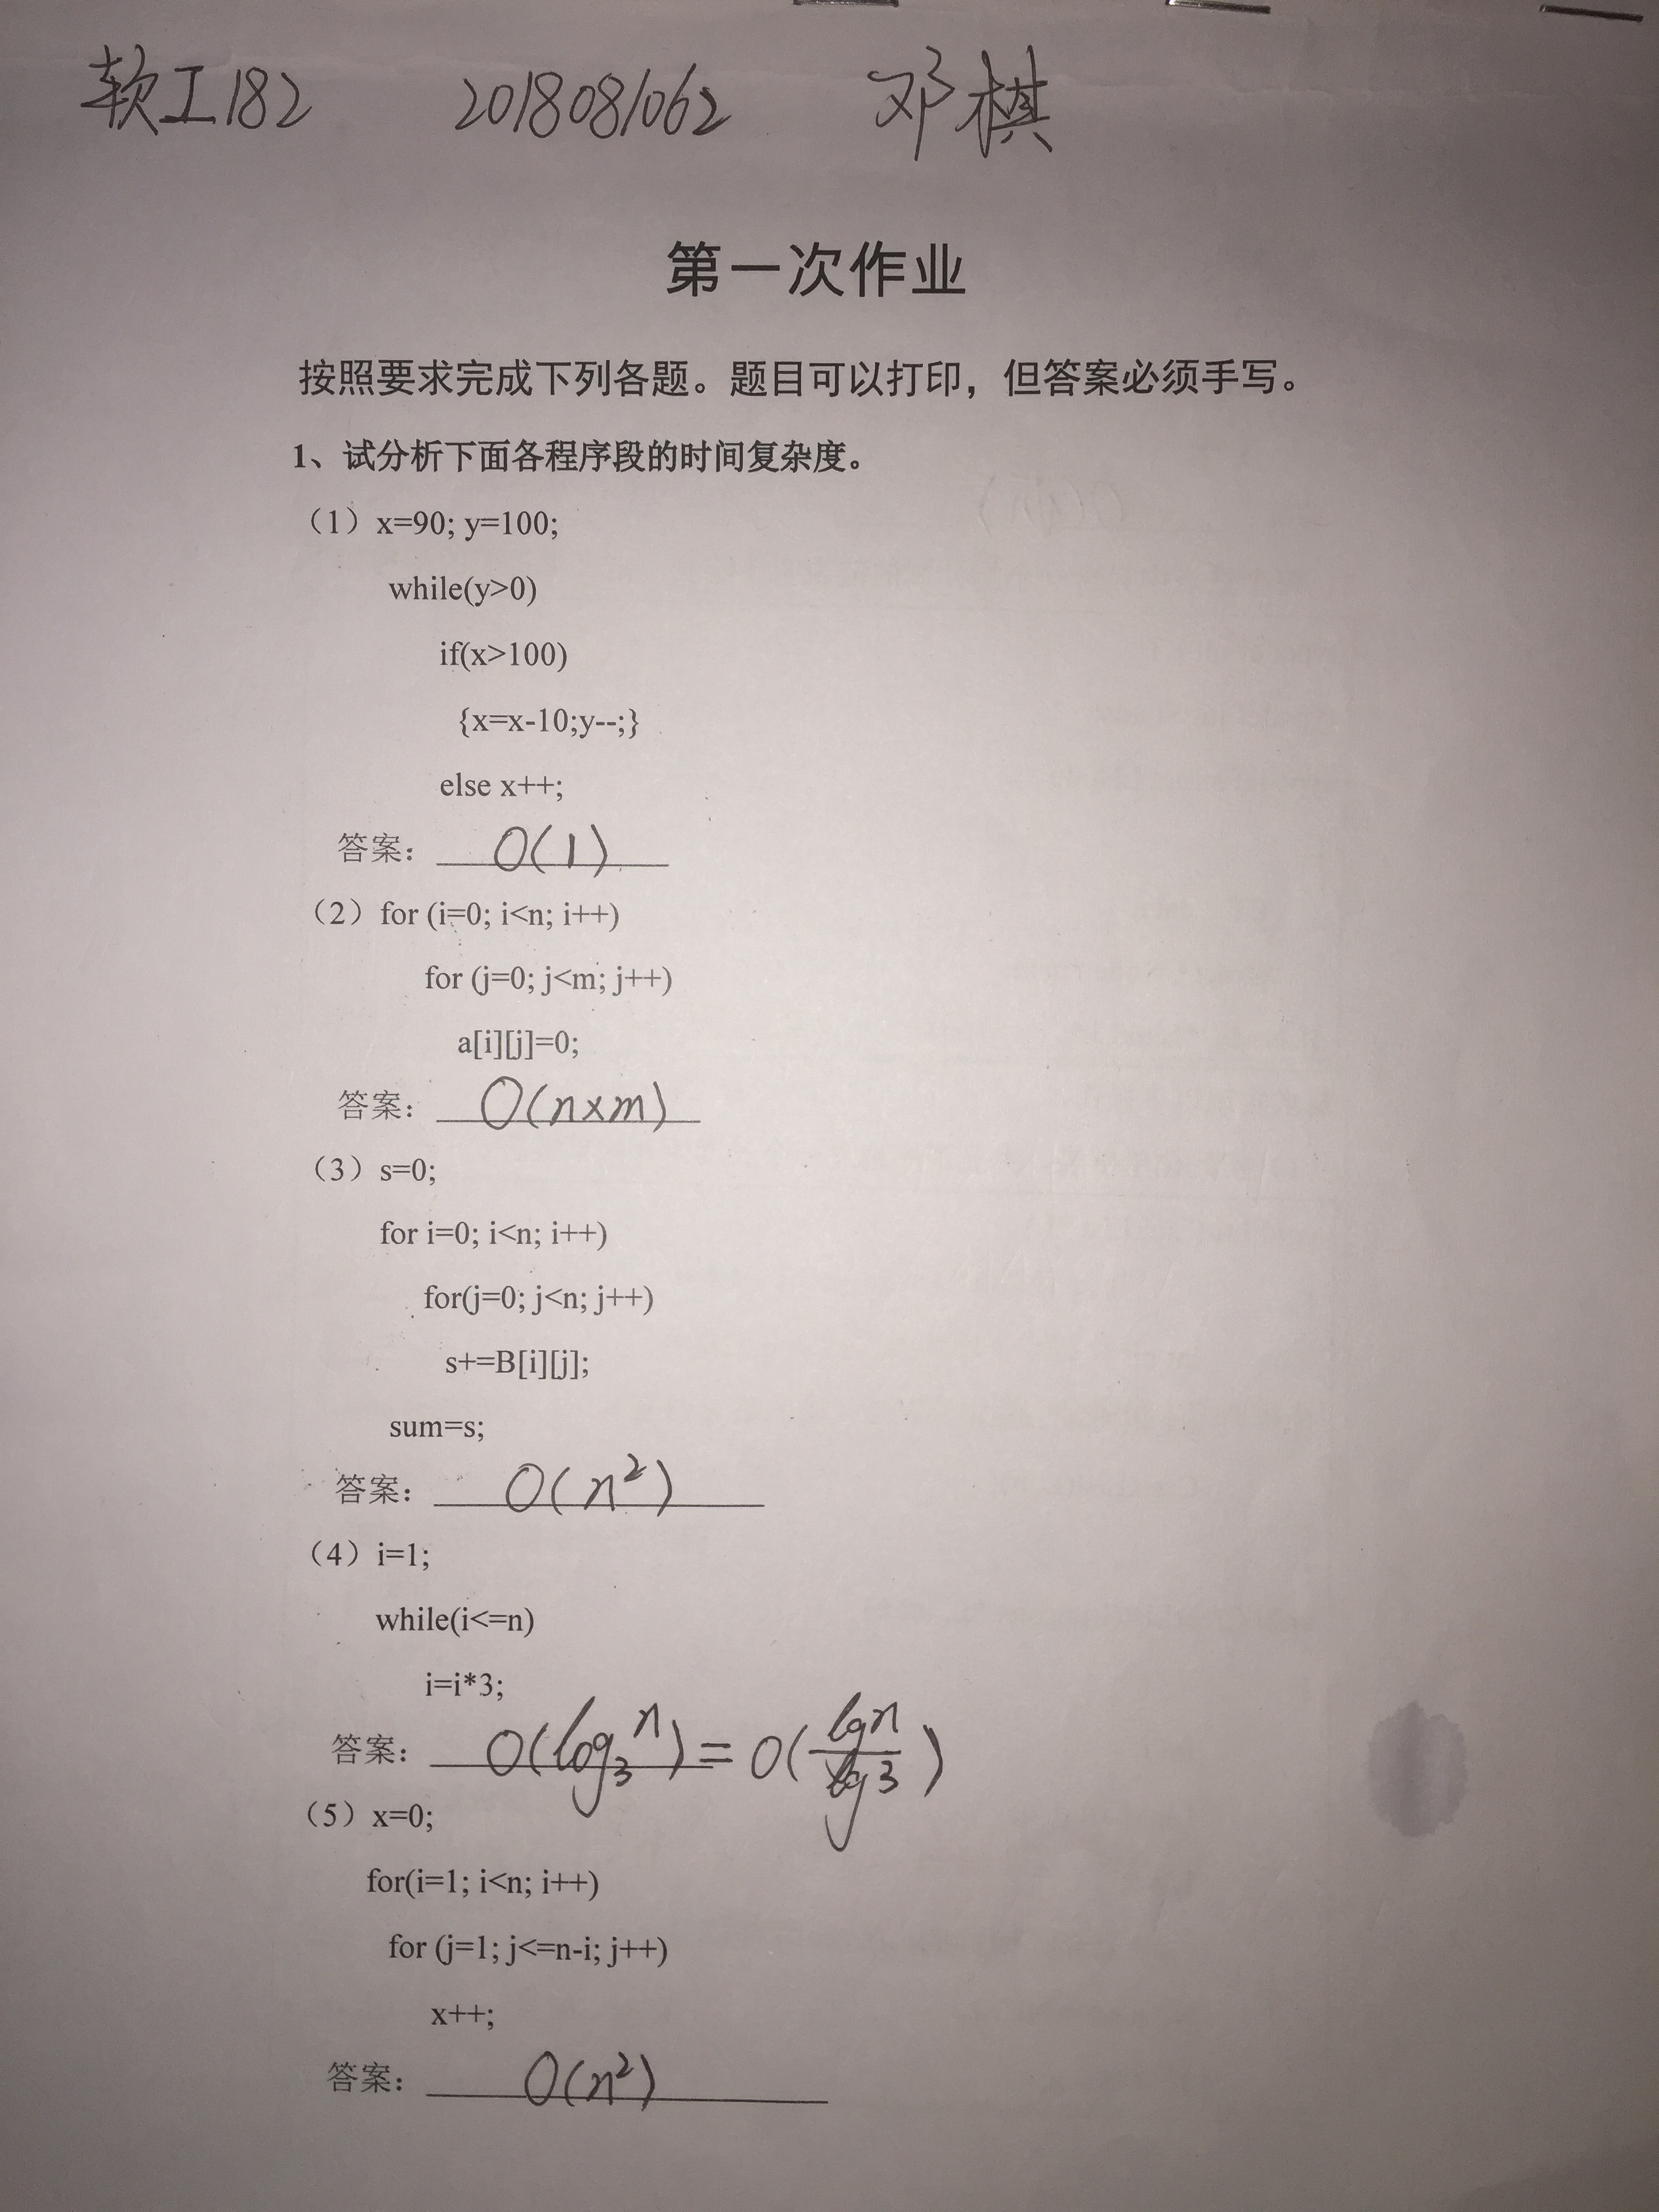 软工182 201808/062 邓棋
第一次作业
按照要求完成下列各题。题目可以打印，但答案必须手写。
1、试分析下面各程序段的时间复杂度。
（1）x=90; y=100;
while(y>0)
if(x>100)
{x=x-10;y--;}
else x++;
答案： O(1)
（2）for (i=0; i<n; i++)
for (j=0; j<m; j++)
a[i][j]=0;
答案： O(n×m)
（3）s=0;
for i=0; i<n; i++)
for(j=0; j<n; j++)
s+=B[i][j];
sum=s;
答案： O(n²)
（4）i=1;
while(i<=n)
i=i*3;
答案： O(log₃ⁿ)=O(lgn/lg3)
（5）x=0;
for(i=1; i<n; i++)
for (j=1; j<=n-i; j++)
x++;
答案： O(n²)